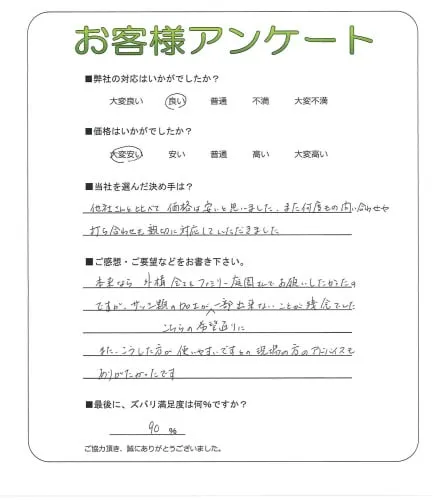 お客様アンケート
■弊社の対応はいかがでしたか?
大変良い 良い 普通 不満 大変不満
■価格はいかがでしたか?
大変安い 安い 普通 高い 大変高い
■当社を選んだ決め手は?
他社さんと比べて 価格は安いと思いました、また何度もの問い合わせや
打ち合わせも親切に対応していただきました
■ご感想・ご要望などをお書き下さい。
本来なら 外構 全てをファミリー庭園さんでお願いしたかったの
ですが、サッシ類の加工が 一部出来ないことが残念でした
こちらの希望通りに
また、こうした方が 使いやすいですよの 現場の方のアドバイスも
ありがたかったです
■最後に、ズバリ満足度は何%ですか?
90 %
ご協力頂き、誠にありがとうございました。